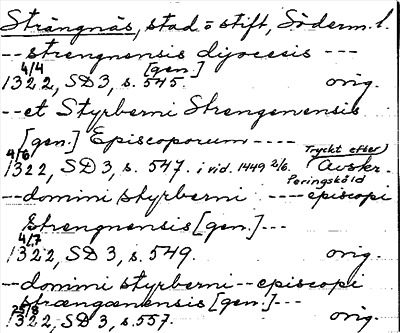 Strängnäs, stad o stift, Söderm. l.
-- strengnensis dyocesis ---
4/4 [gen.]
1322, SD 3, s. 545. orig.
-- et Styrberni Strengenensis
[gen.] Episcoporum ----
4/6 Tryckt efter
1322, SD 3, s. 547. i vid. 1449 2/6. Avskr.
Peringsköld
-- domini styrberni ---- episcopi
strengnensis [gen.] ---
4/7
1322, SD 3, s. 549. orig.
-- domini styrberni -- episcopi
strængænensis [gen.] ---
25/8
1322, SD 3, s. 557. orig.